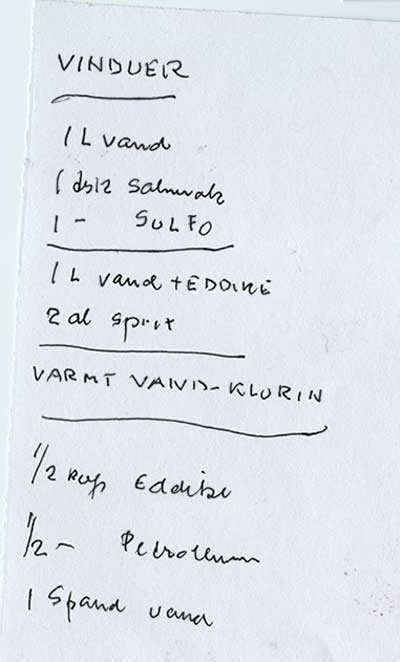 VINDUER
1 L vand
1 dsk Salmiak
1 - SULFO
1 L vand + EDDIKE
2 dl sprit
VARMT VAND-KLORIN
1/2 kop Eddike
1/2 - Petroleum
1 Spand vand